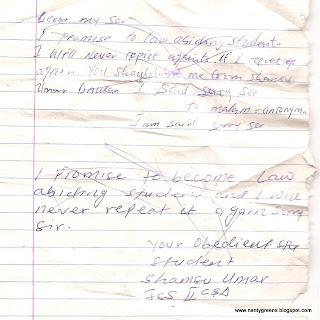 Dear my ser
I promise to law abiding student
I will never repiet againts if I repiet
again You should me from school
Umar I said sorry ser
to malam = antony
I am said sorry ser
I Promise to become law
abiding student and I will
never repeat it again sorry
sir.
Your Obedient
student
Shamsu Umar
JSS II
www.nantygreens.blogspot.com